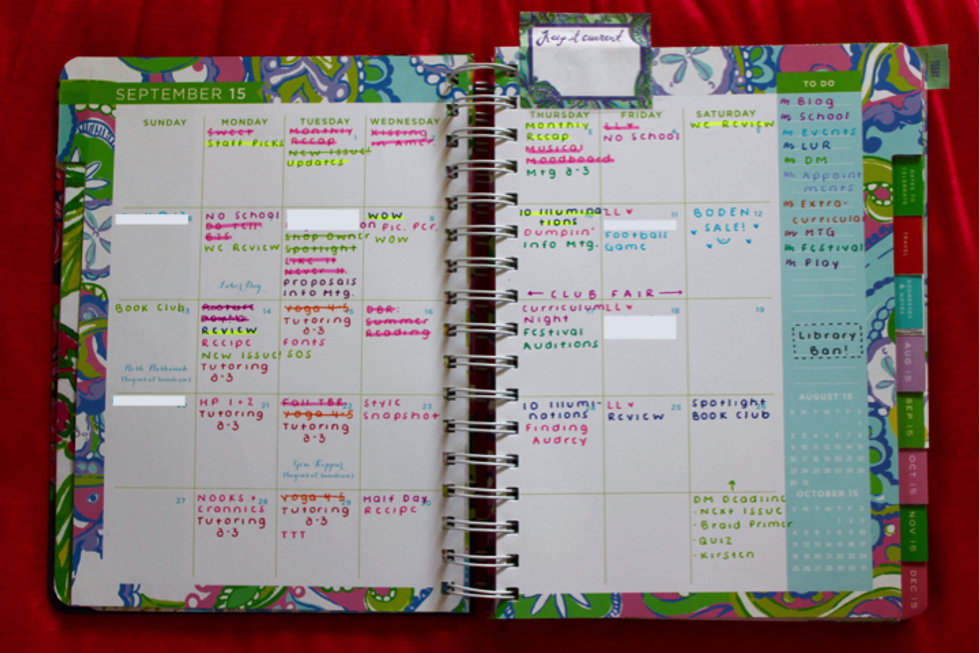 Keep it current
SEPTEMBER 15
SUNDAY
MONDAY
TUESDAY
WEDNESDAY
THURSDAY
FRIDAY
SATURDAY
TO DO
Sweet
Staff Picks
Monthly
Recap
New Issue!
Updates
Kissing
in Amer.
Monthly
Recap
Musical
Moodboard
Mtg 2-3
LL ♥
No School
WC Review
No School
Do Tell!
WC Review
Labor Day
Shop Owner
Spotlight
Like It
Never
Proposals
Info Mtg.
WOW
on Pic. Per.
WOW
10 Illumina
tions
Dumplin'
Info Mtg.
LL ♥
Football
Game
BODEN 12
SALE!
← CLUB FAIR →
Book Club
Rosh Hashanah
(begins at sundown)
14
Product
Review
Recipe
New Issue!
Tutoring
2-3
Yoga 4-5
Tutoring
2-3
Fonts
SOS
16
DBR:
Summer
Reading
Curriculum
Night
Festival
Auditions
LL ♥
18
19
HP 1+2
21
Tutoring
2-3
Fall TBR
Yoga 4-5
Tutoring
2-3
Yom Kippur
(begins at sundown)
Style
23
Snapshot
10 Illumi-
nations
Finding
Audrey
LL ♥
25
Review
Spotlight
Book Club
27
Nooks +
28
Crannies
Tutoring
2-3
Yoga 4-5
29
Tutoring
2-3
TTT
Half Day
Recipe
DM Deadline
- Next Issue
- Braid Primer
- Quiz
- Kirsten
Blog
School
Events
LUR
DM
Appoint
ments
Extra-
curricular
MTG
Festival
Play
Library
Ban!
AUGUST 15
OCTOBER 15
DATES TO
CELEBRATE
TRAVEL
ADDRESSES
& NOTES
AUG 15
SEP 15
OCT 15
NOV 15
DEC 15